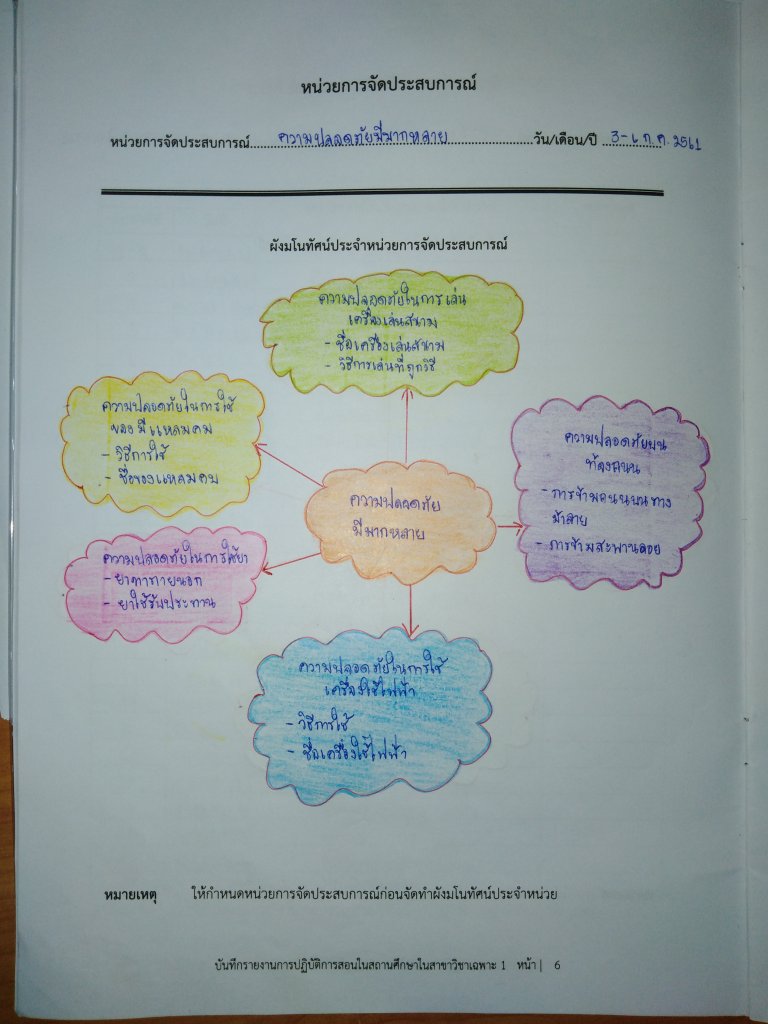 หน่วยการจัดประสบการณ์
หน่วยการจัดประสบการณ์....ความปลอดภัยมีมากหลาย....วัน/เดือน/ปี ...3-6 ก.ค. 2561
ผังมโนทัศน์ประจำหน่วยการจัดประสบการณ์
ความปลอดภัยในการเล่น
เครื่องเล่นสนาม
- ชื่อเครื่องเล่นสนาม
- วิธีการเล่นที่ถูกวิธี
ความปลอดภัยในการใช้
ของมีแหลมคม
- วิธีการใช้
- ชื่อของแหลมคม
ความปลอดภัยบน
ท้องถนน
- การข้ามถนนบนทาง
ม้าลาย
- การข้ามสะพานลอย
ความปลอดภัย
มีมากหลาย
ความปลอดภัยในการใช้ยา
- ยาทาภายนอก
- ยาใช้รับประทาน
ความปลอดภัยในการใช้
เครื่องใช้ไฟฟ้า
- วิธีการใช้
- ชื่อเครื่องใช้ไฟฟ้า
หมายเหตุ ให้กำหนดหน่วยการจัดประสบการณ์ก่อนจัดทำผังมโนทัศน์ประจำหน่วย
บันทึกรายงานการปฏิบัติการสอนในสถานศึกษาในสาขาวิชาเฉพาะ 1 หน้า | 6